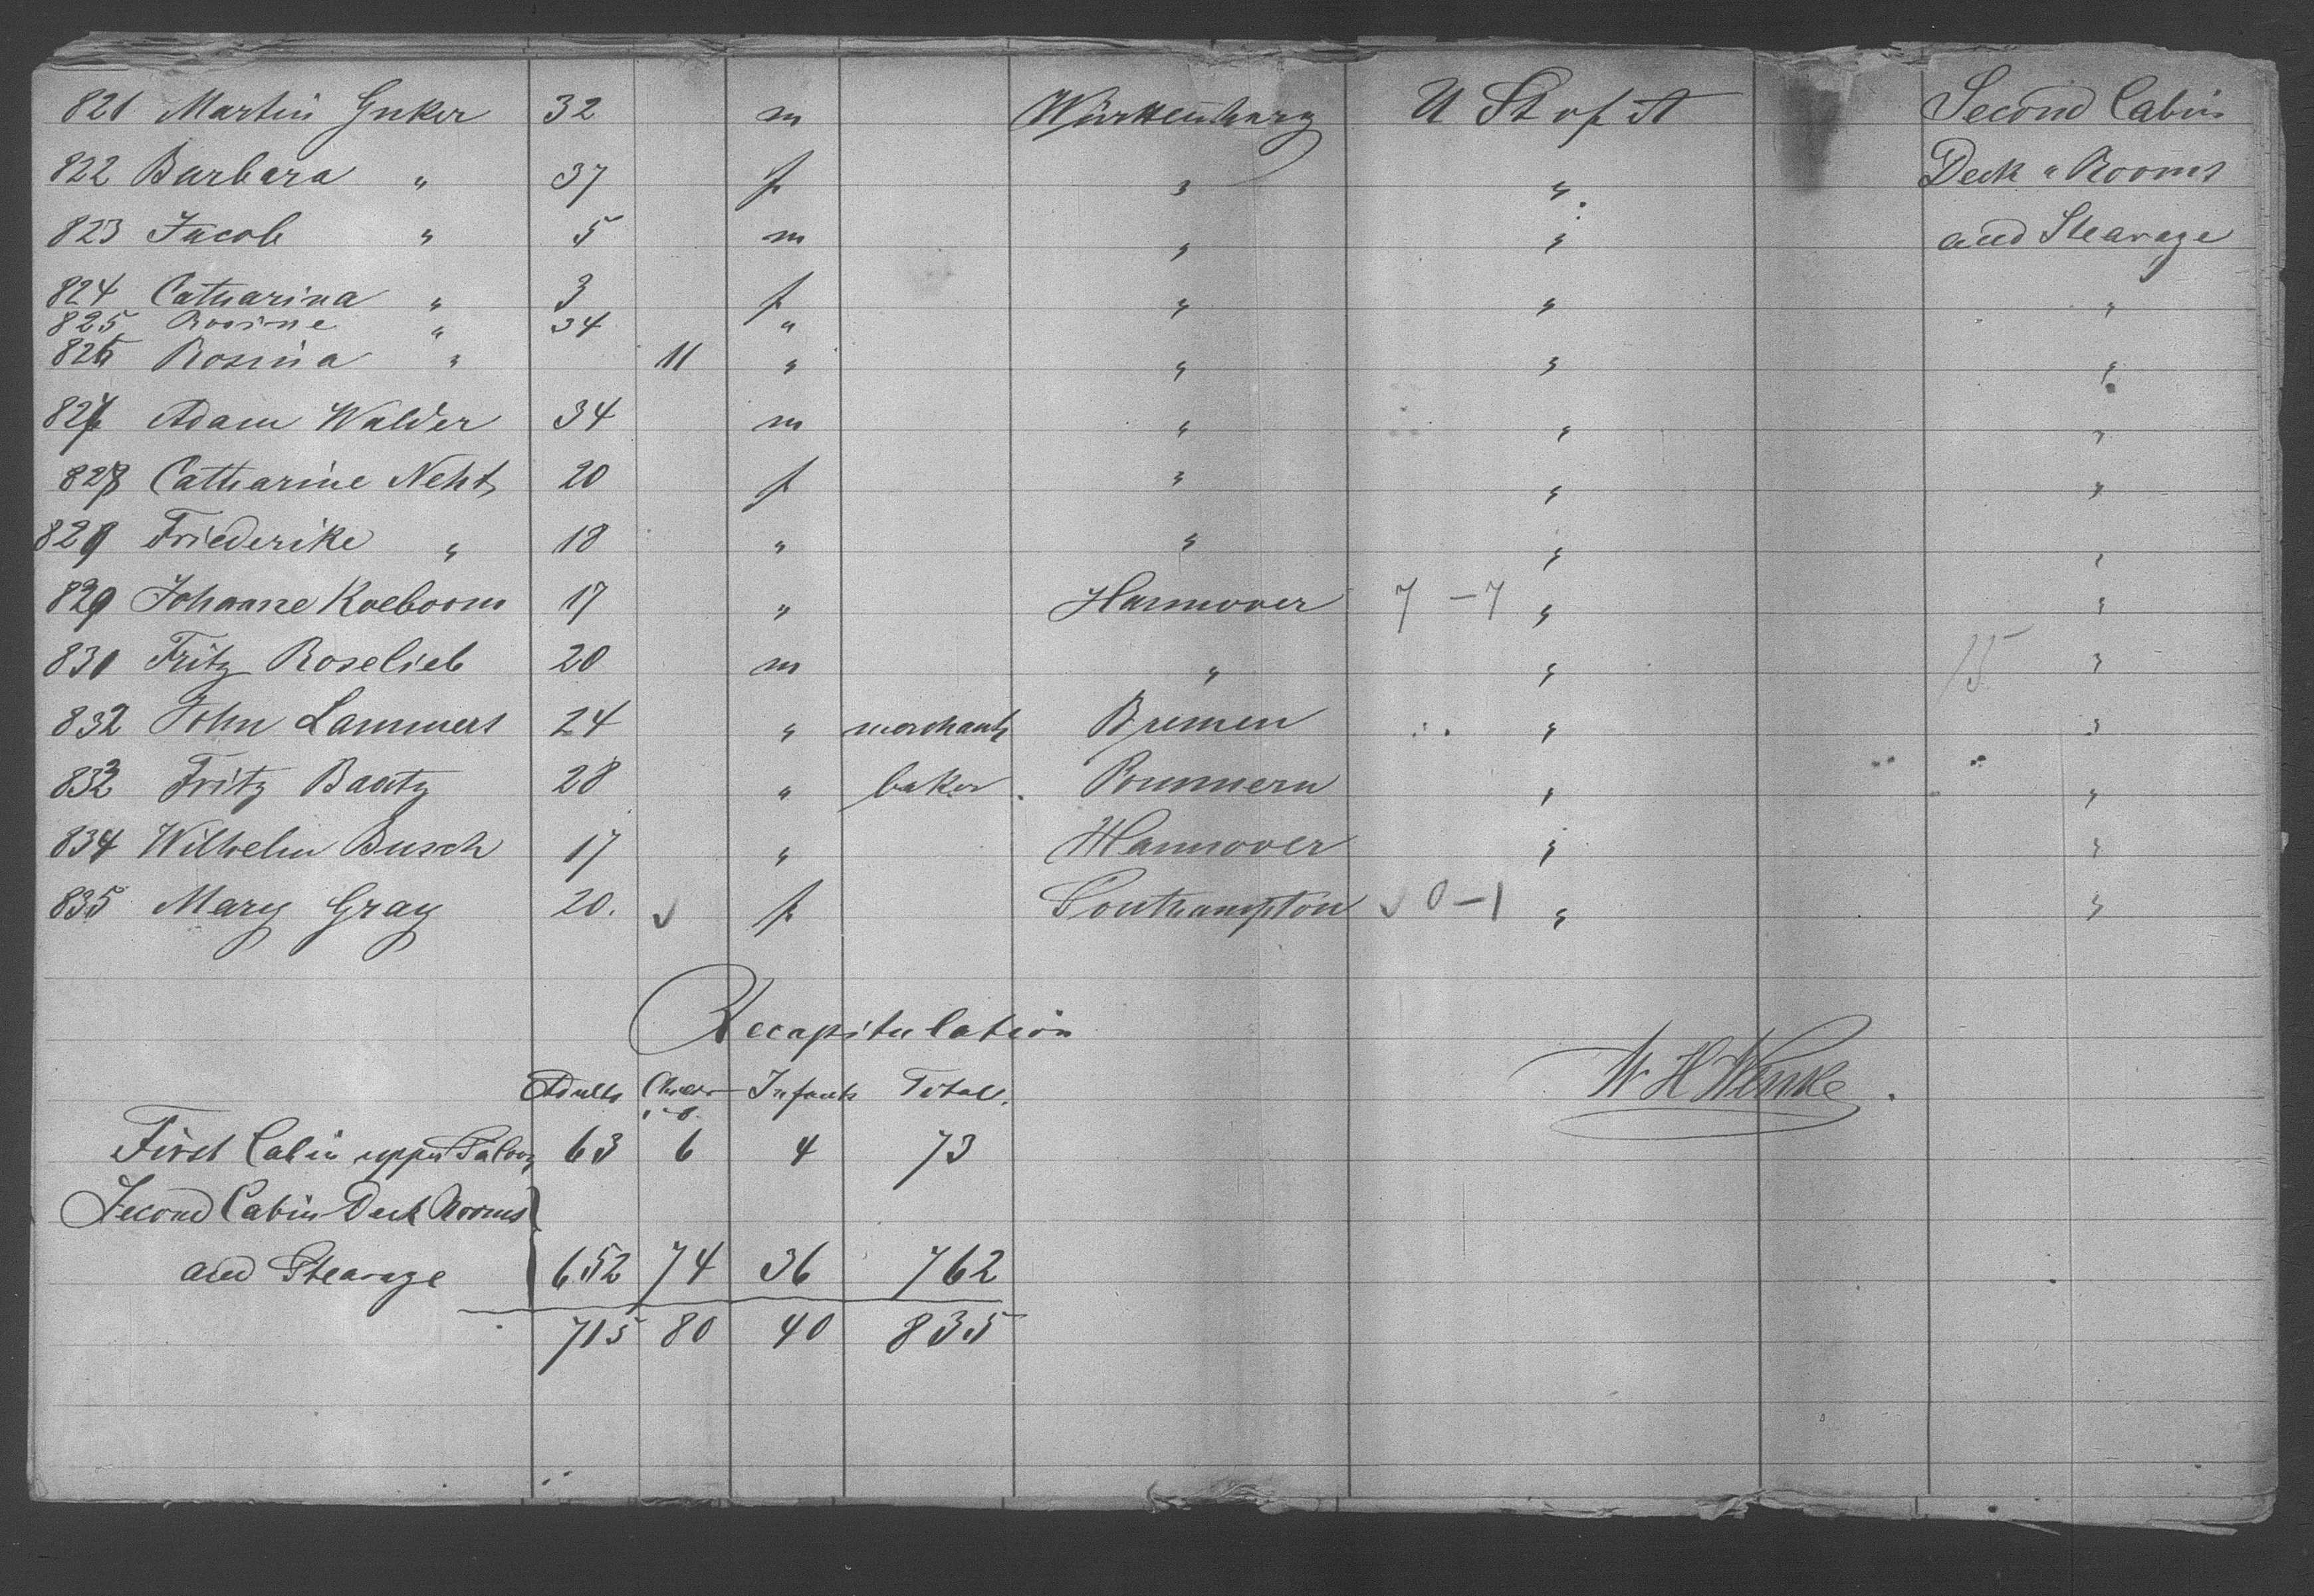 821 Martin Gnker 32 m Württemberg U St of A Second Cabin
822 Barbara " 37 f " " Deck " Rooms
823 Jacob " 5 m " " and Stearage
824 Catharina " 3 f " " "
825 Rosine " 34 "
826 Rosina " 11 " " " "
827 Adam Walder 34 m " " "
828 Catharine Neht 20 f " " "
829 Friederike " 18 " " " "
829 Johanne Koeboom 17 " Hannover 7 - 7 " "
831 Fritz Roselieb 20 m " " 15 "
832 John Lammers 24 " merchant Bremen " "
833 Fritz Baatz 28 " baker Pommern " "
834 Wilhelm Busch 17 " Hannover " "
835 Mary Gray 20. f Southampton 0 - 1 " "
Recapitulation
Adults Infants Total.
First Cabin upper Saloon 63 6 4 73
Second Cabin Deck Rooms
and Stearage 652 74 36 762
715 80 40 835
W H Wenke